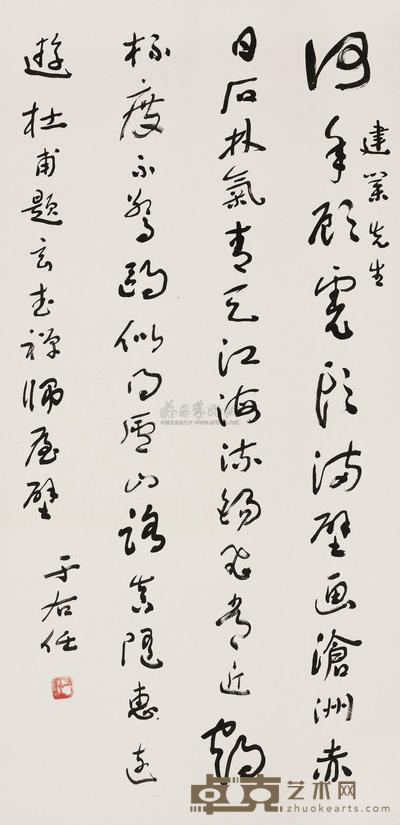 何年顧虎頭滿壁画滄洲赤
建業先生
日石林氣青天江海流錫飛常近鶴
杯度不驚鷗似得廬山路真隨惠遠
遊 杜甫題玄武禪師屋壁
于右任
卓克艺术网
www.zhuokearts.com